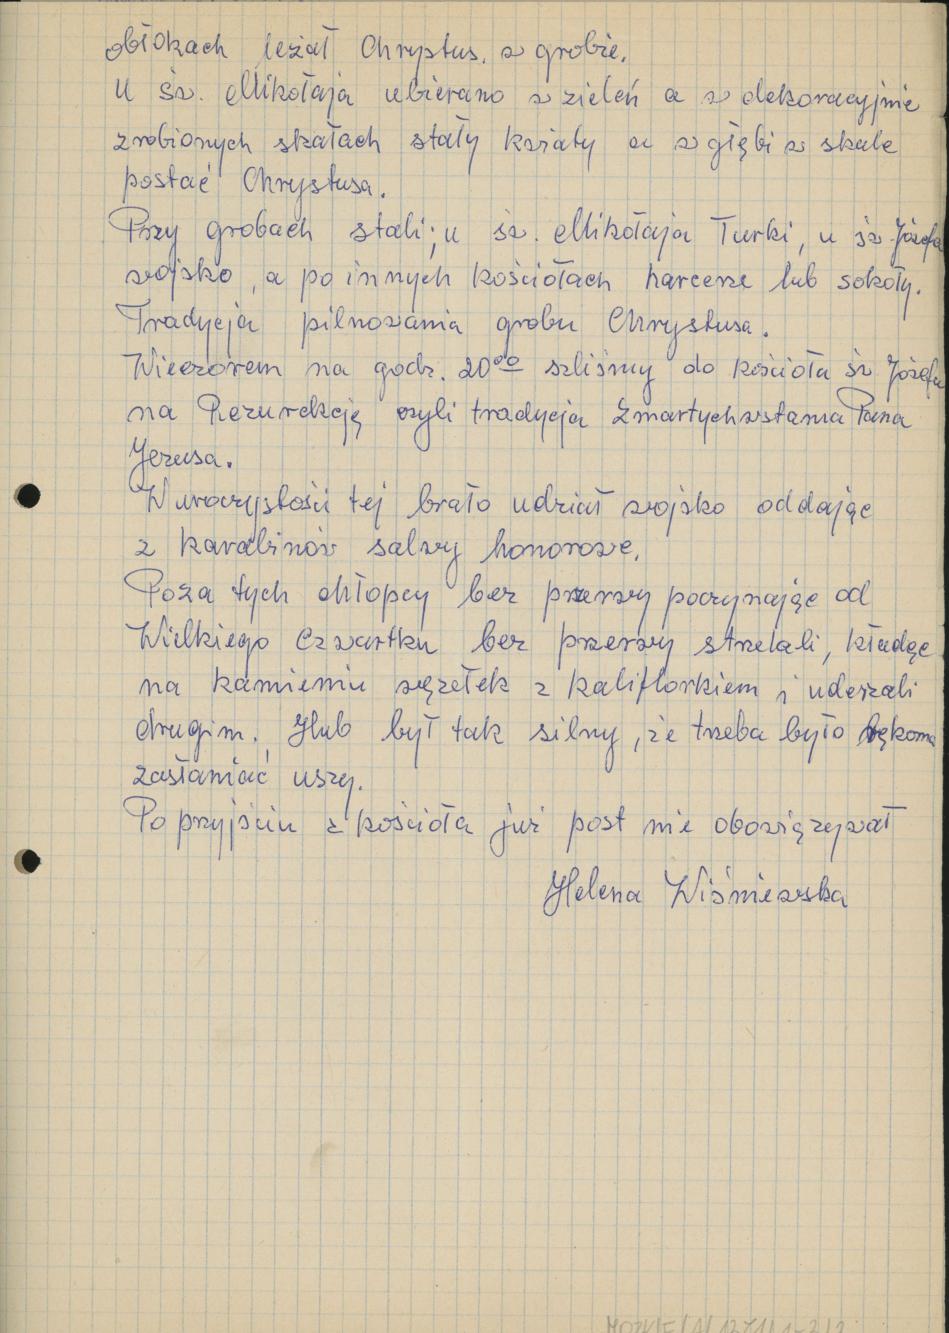 obłokach leżał Chrystus. w grobie.
U św. Mikołaja ubierano w zieleń a w dekoracyjnie
zrobionych skałach stały kwiaty a w głębi w skale
postać Chrystusa.
Przy grobach stali; u św. Mikołaja Turki, u św. Józefa
wojsko, a po innych kościołach harcerze lub sokoły.
Tradycja pilnowania grobu Chrystusa.
Wieczorem na godz. 20⁰⁰ szliśmy do kościoła św Józefa
na Rezurekcję czyli tradycja Zmartychwstania Pana
Jezusa.
W uroczystości tej brało udział wojsko oddając
z karabinów salwy honorowe.
Poza tych chłopcy bez przerwy poczynając od
Wielkiego Czwartku bez przerwy strzelali, kładąc
na kamieniu węzełek z kaliflorkiem i uderzali
drugim. Huk był tak silny, że trzeba było rękoma
zasłaniać uszy.
Po przyjściu z kościoła już post nie obowiązywał
Helena Wiśniewska